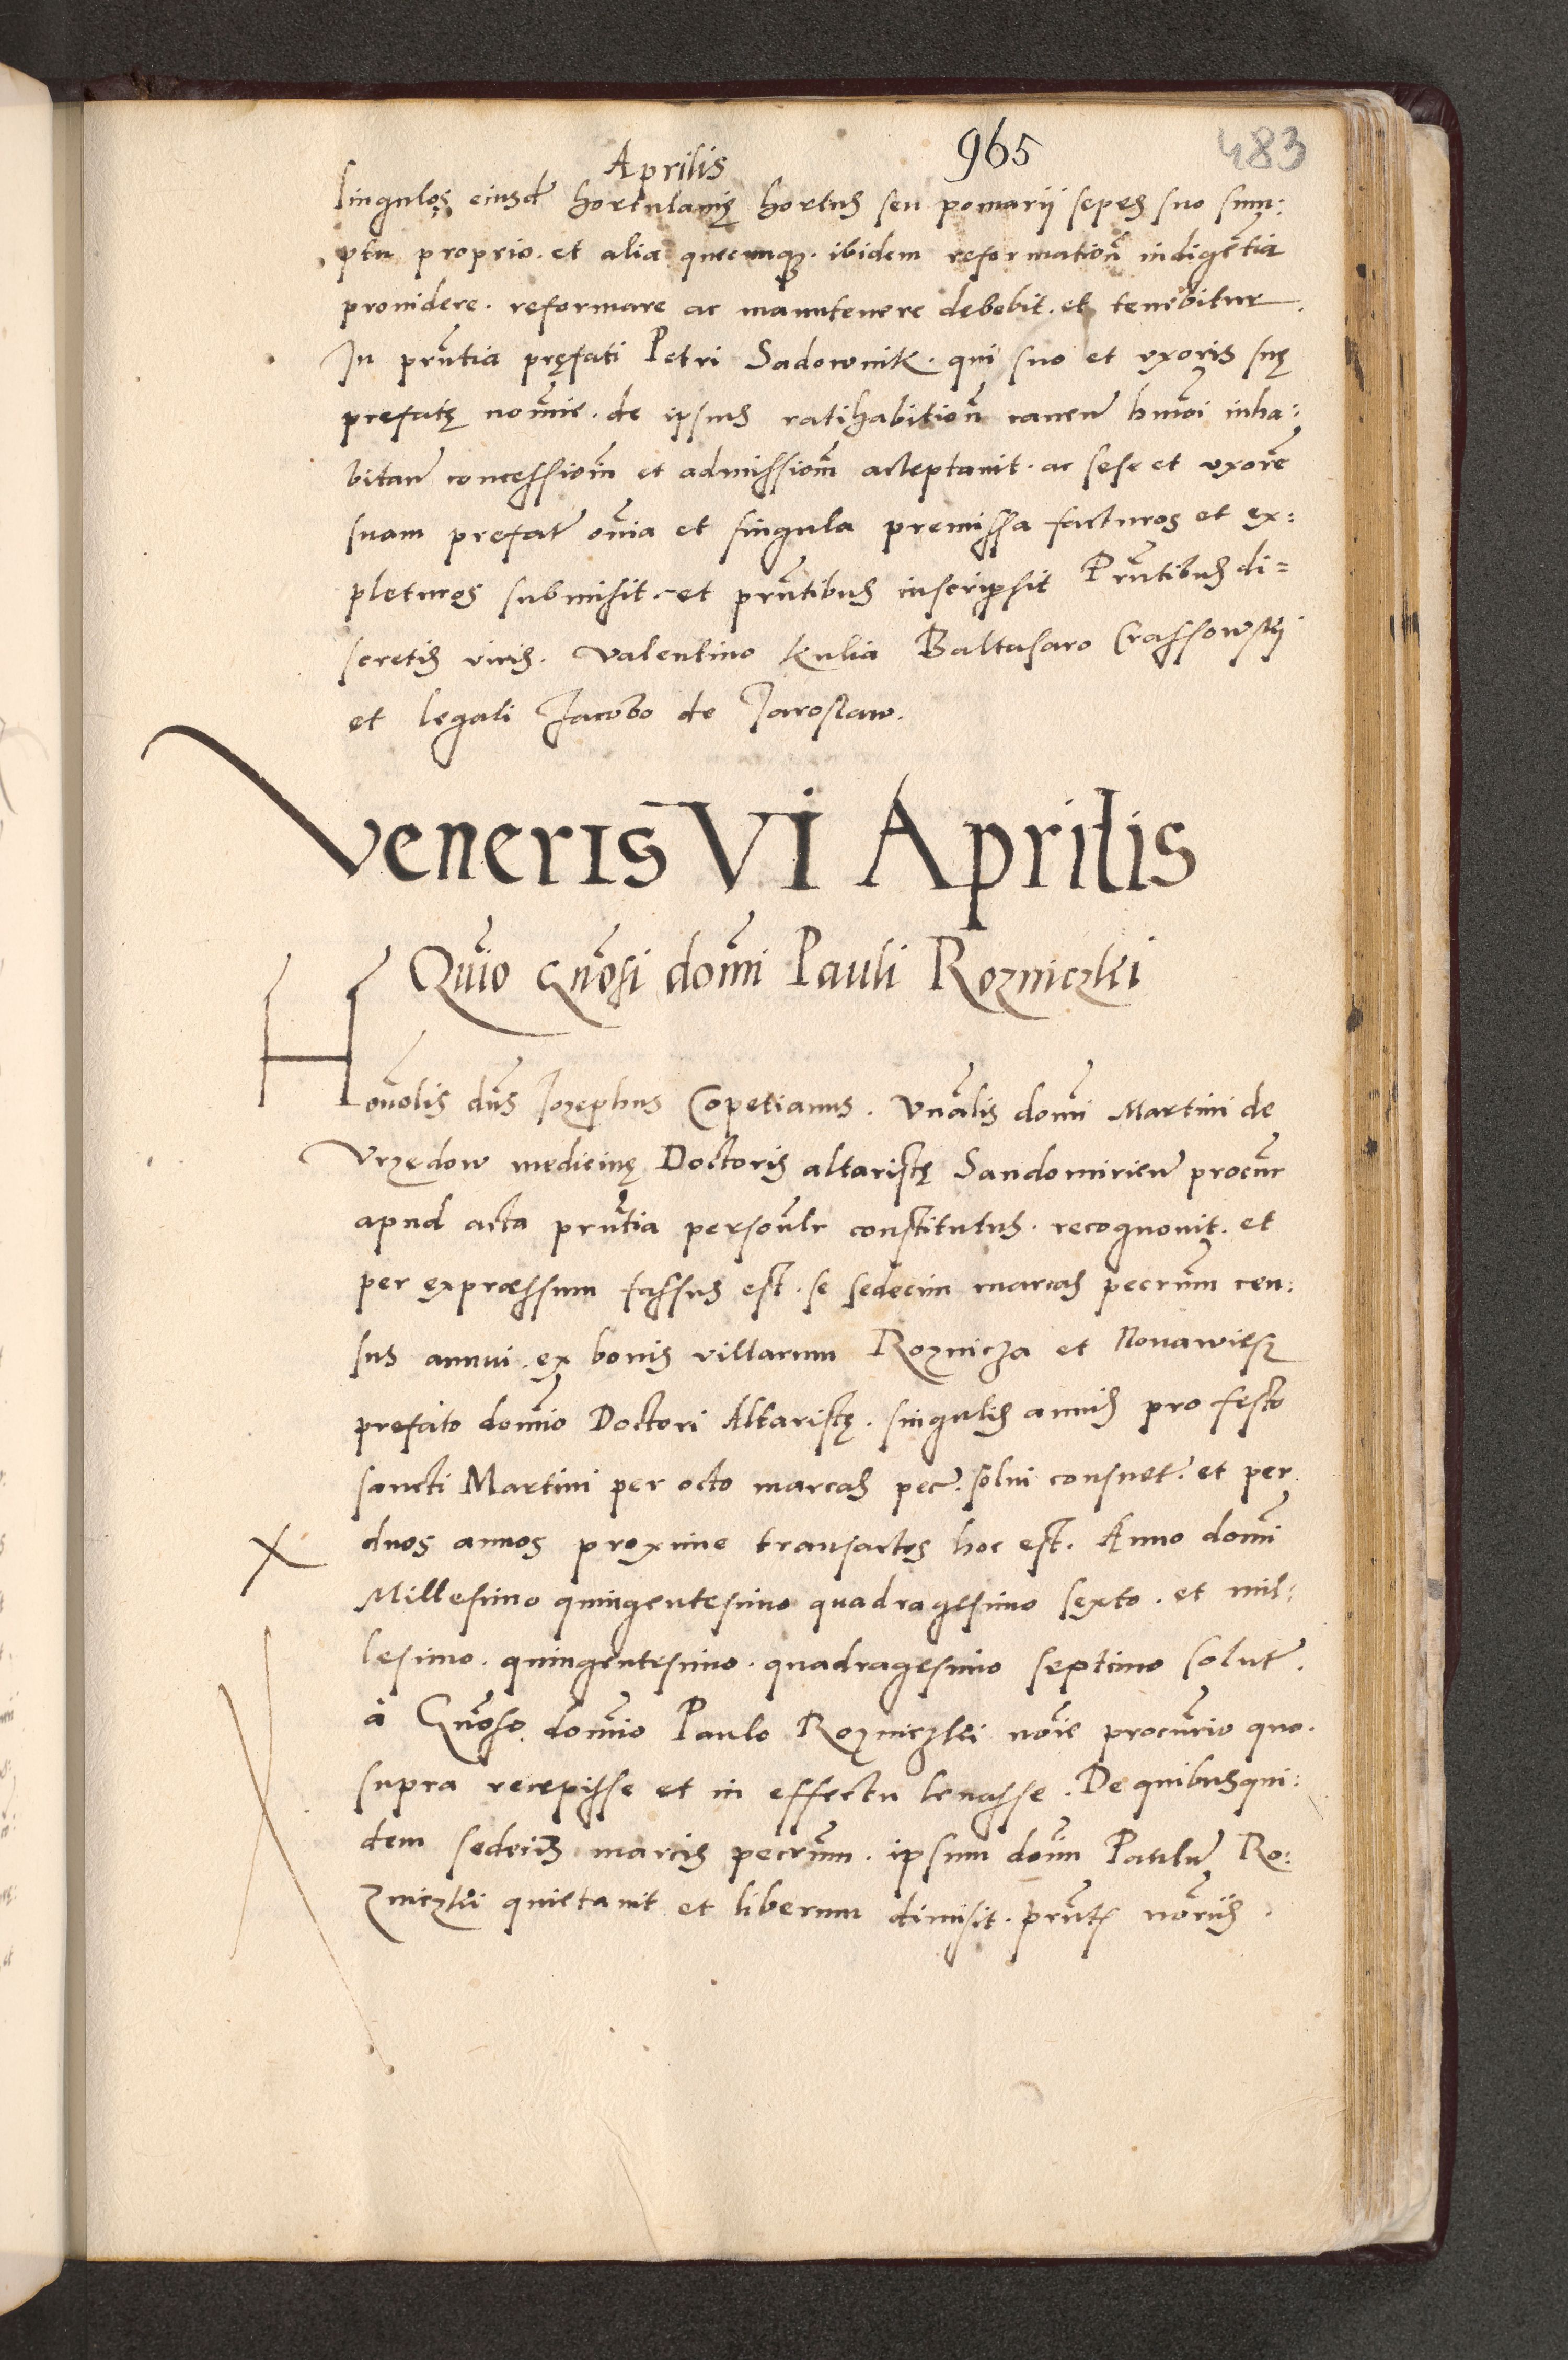 Aprilis 965 483
singulos eiusd̃ hortulanię hortus seu pomarij sepes suo sum:
ptu proprio. et alia quecunq3. ibidem reformatioñ indigẽtia
prouidere. reformare ac manutenere debebit. et tenebitur.
In pñtia pręfati Petri Sadownik. qui suo et uxoris suę
prefatę noĩe. de ipsius ratihabitioñ caueñ hmõi inha:
bitañ concessioñ et admissioñ acceptauit. ac sese et uxorẽ
suam prefat̃ oĩa et singula premissa facturos et ex:
pleturos submisit. et pñtibus inscripsit Pñtibus di=
scretis viris. Valentino Kulia Baltasaro Crassowskij
et legali Jacobo de Jaroslaw.
Veneris VI Aprilis
Quĩo Gñosi domĩ Pauli Rozniczkĩ
Honolis dñs Jozephus Copetianus. Vñalis domĩ Martini de
Vrzędow medicinę Doctoris altaristę Sandomirieñ procur̃
apud acta pñtia personlr̃ constitutus. recognouit. et
per expræssum fassus est. se sedecim marcas pecr̃um cen:
sus annui. ex bonis villarum Roznicza et Nouawiesz
prefato domĩo Doctori Altaristę. singulis annis pro festo
sancti Martini per octo marcas pec̃. solui consuet̃. et per
duos annos proxime transactos hoc est. Anno domĩ
Millesimo quingentesimo quadragesimo sexto. et mil:
lesimo. quingentesimo. quadragesimo septimo solut̃.
à Gñoso domĩo Paulo Rozniczkĩ noĩe procur̃io quo.
supra recepisse et in effectu leuasse. De quibusqui:
dem sedecim marcis pecr̃um. ipsum doĩm Paulũ Ro:
zniczkĩ quietauit et liberum dimisit. pñt̃ nõrijs.